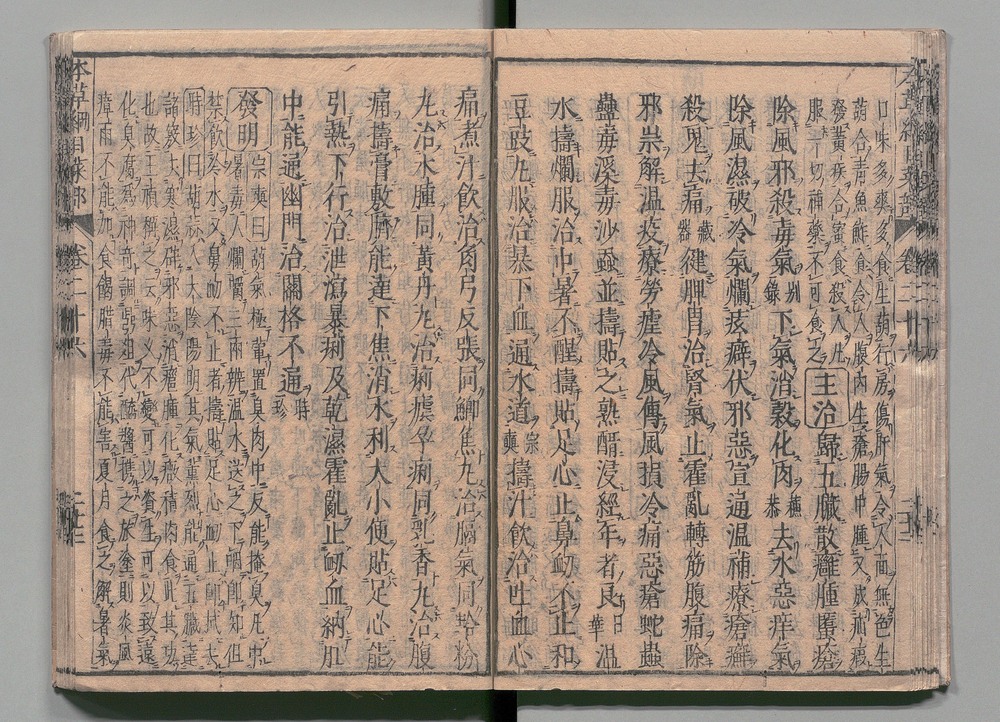 口味多爽多食生葫行房傷肝氣令人面無色生
葫合青魚鮓食令人腹內生瘡腸中腫又成疝瘕
發黃疾合蜜食殺人凡
服一切神藥不可食之主治歸五臟散癰腫䘌瘡
除風邪殺毒氣別錄下氣消穀化肉穗恭去水惡瘴氣
除風濕破冷氣爛痃癖伏邪惡宣通溫補療瘡癬
殺鬼去痛藏器健脾胃治腎氣止霍亂轉筋腹痛除
邪祟解溫疫療勞瘧冷風傅風損冷痛惡瘡蛇蟲
蠱毒溪毒沙蝨並擣貼之熟醋浸經年者良日華溫
水擣爛服治中暑不醒擣貼足心止鼻衂不止和
豆豉丸服治暴下血通水道宗奭擣汁飲治吐血心
痛煮汁飲治角弓反張同鯽魚丸治膈氣同蛤粉
丸治水腫同黃丹丸治痢瘧孕痢同乳香丸治腹
痛擣膏敷臍能達下焦消水利大小便貼足心能
引熱下行治泄瀉暴痢及乾濕霍亂止衂血納肛
中能通幽門治關格不通時珍
發明宗奭曰葫氣極葷置臭肉中反能掩臭凡中
暑毒人爛嚼三兩瓣溫水送之下咽即知但
禁飲冷水又鼻衂不止者擣貼足心衂止即拭去
時珍曰胡蒜入太陰陽明其氣薰烈能通五臟達
諸竅去寒濕辟邪惡消癰腫化癥積肉食此其功
也故王禎稱之云味久不變可以資生可以致遠
化臭腐為神奇調鼎俎代醯醬攜之旅塗則炎風
瘴雨不能加食餲腊毒不能害夏月食之解暑氣
本草綱目菜部 卷二十六